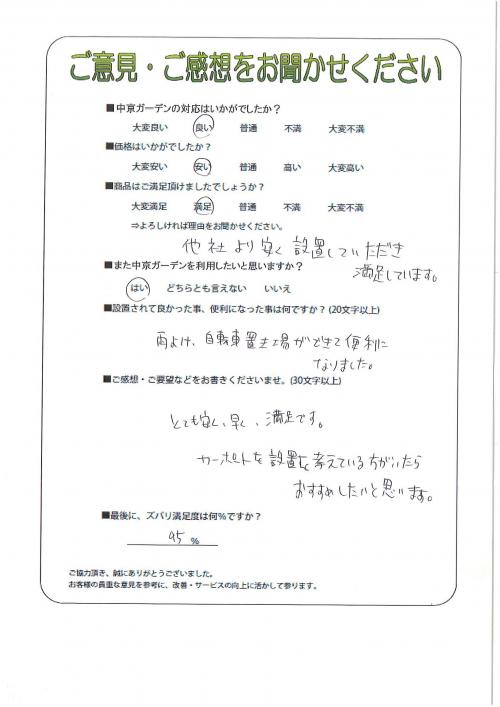 ご意見・ご感想をお聞かせください
■中京ガーデンの対応はいかがでしたか？
大変良い 良い 普通 不満 大変不満
■価格はいかがでしたか？
大変安い 安い 普通 高い 大変高い
■商品はご満足頂けましたでしょうか？
大変満足 満足 普通 不満 大変不満
⇒よろしければ理由をお聞かせください。
他社より安く設置していただき
満足しています。
■また中京ガーデンを利用したいと思いますか？
はい どちらとも言えない いいえ
■設置されて良かった事、便利になった事は何ですか？(20文字以上)
雨よけ、自転車置き場ができて便利に
なりました。
■ご感想・ご要望などをお書きくださいませ。(30文字以上)
とても安く、早く、満足です。
カーポートを設置を考えている方がいたら
おすすめしたいと思います。
■最後に、ズバリ満足度は何%ですか？
95 %
ご協力頂き、誠にありがとうございました。
お客様の貴重な意見を参考に、改善・サービスの向上に活かして参ります。